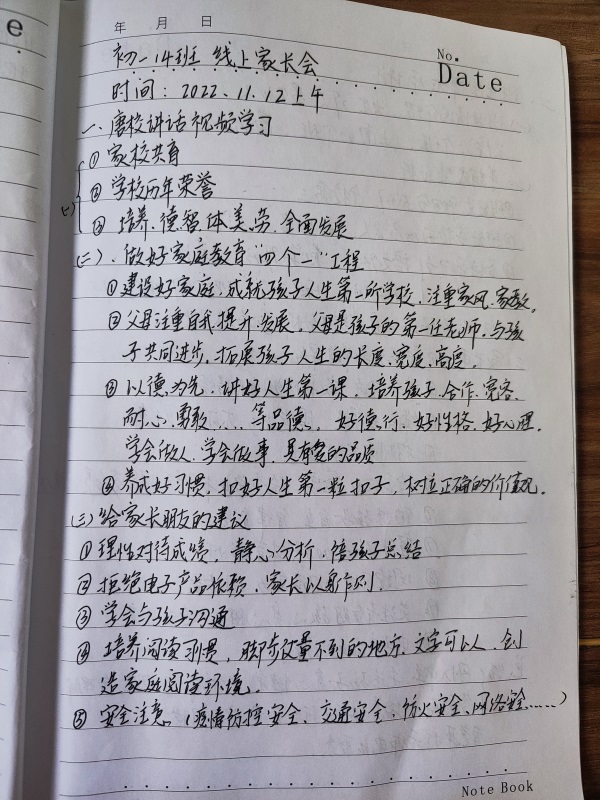 e
年 月 日
初一14班 线上家长会
No.
Date
时间:2022.11.12上午
一、唐校讲话视频学习
① 家校共育
② 学校历年荣誉
(一)
③ 培养.德.智.体美.劳.全面发展
(二).做好家庭教育"四个一"工程
①建设好家庭.成就孩子人生第一所学校.注重家风.家教.
②父母注重自我提升.发展,父母是孩子的第一任老师.与孩
子共同进步,拓展孩子人生的长度.宽度.高度.
③以德为先.讲好人生第一课,培养孩子.合作.宽容.
耐心.勇敢....等品德,好德行.好性格.好心理.
学会做人.学会做事.具有爱的品质
④养成好习惯,扣好人生第一粒扣子,树立正确的价值观.
(三)给家长朋友的建议
①理性对待成绩,静心分析.陪孩子总结
②拒绝电子产品依赖.家长以身作则.
③学会与孩子沟通
④培养阅读习惯,脚步丈量不到的地方.文字可以.创
造家庭阅读环境.
⑤安全注意.(疫情防控安全、交通安全;防火安全、网络安全......)
Note Book